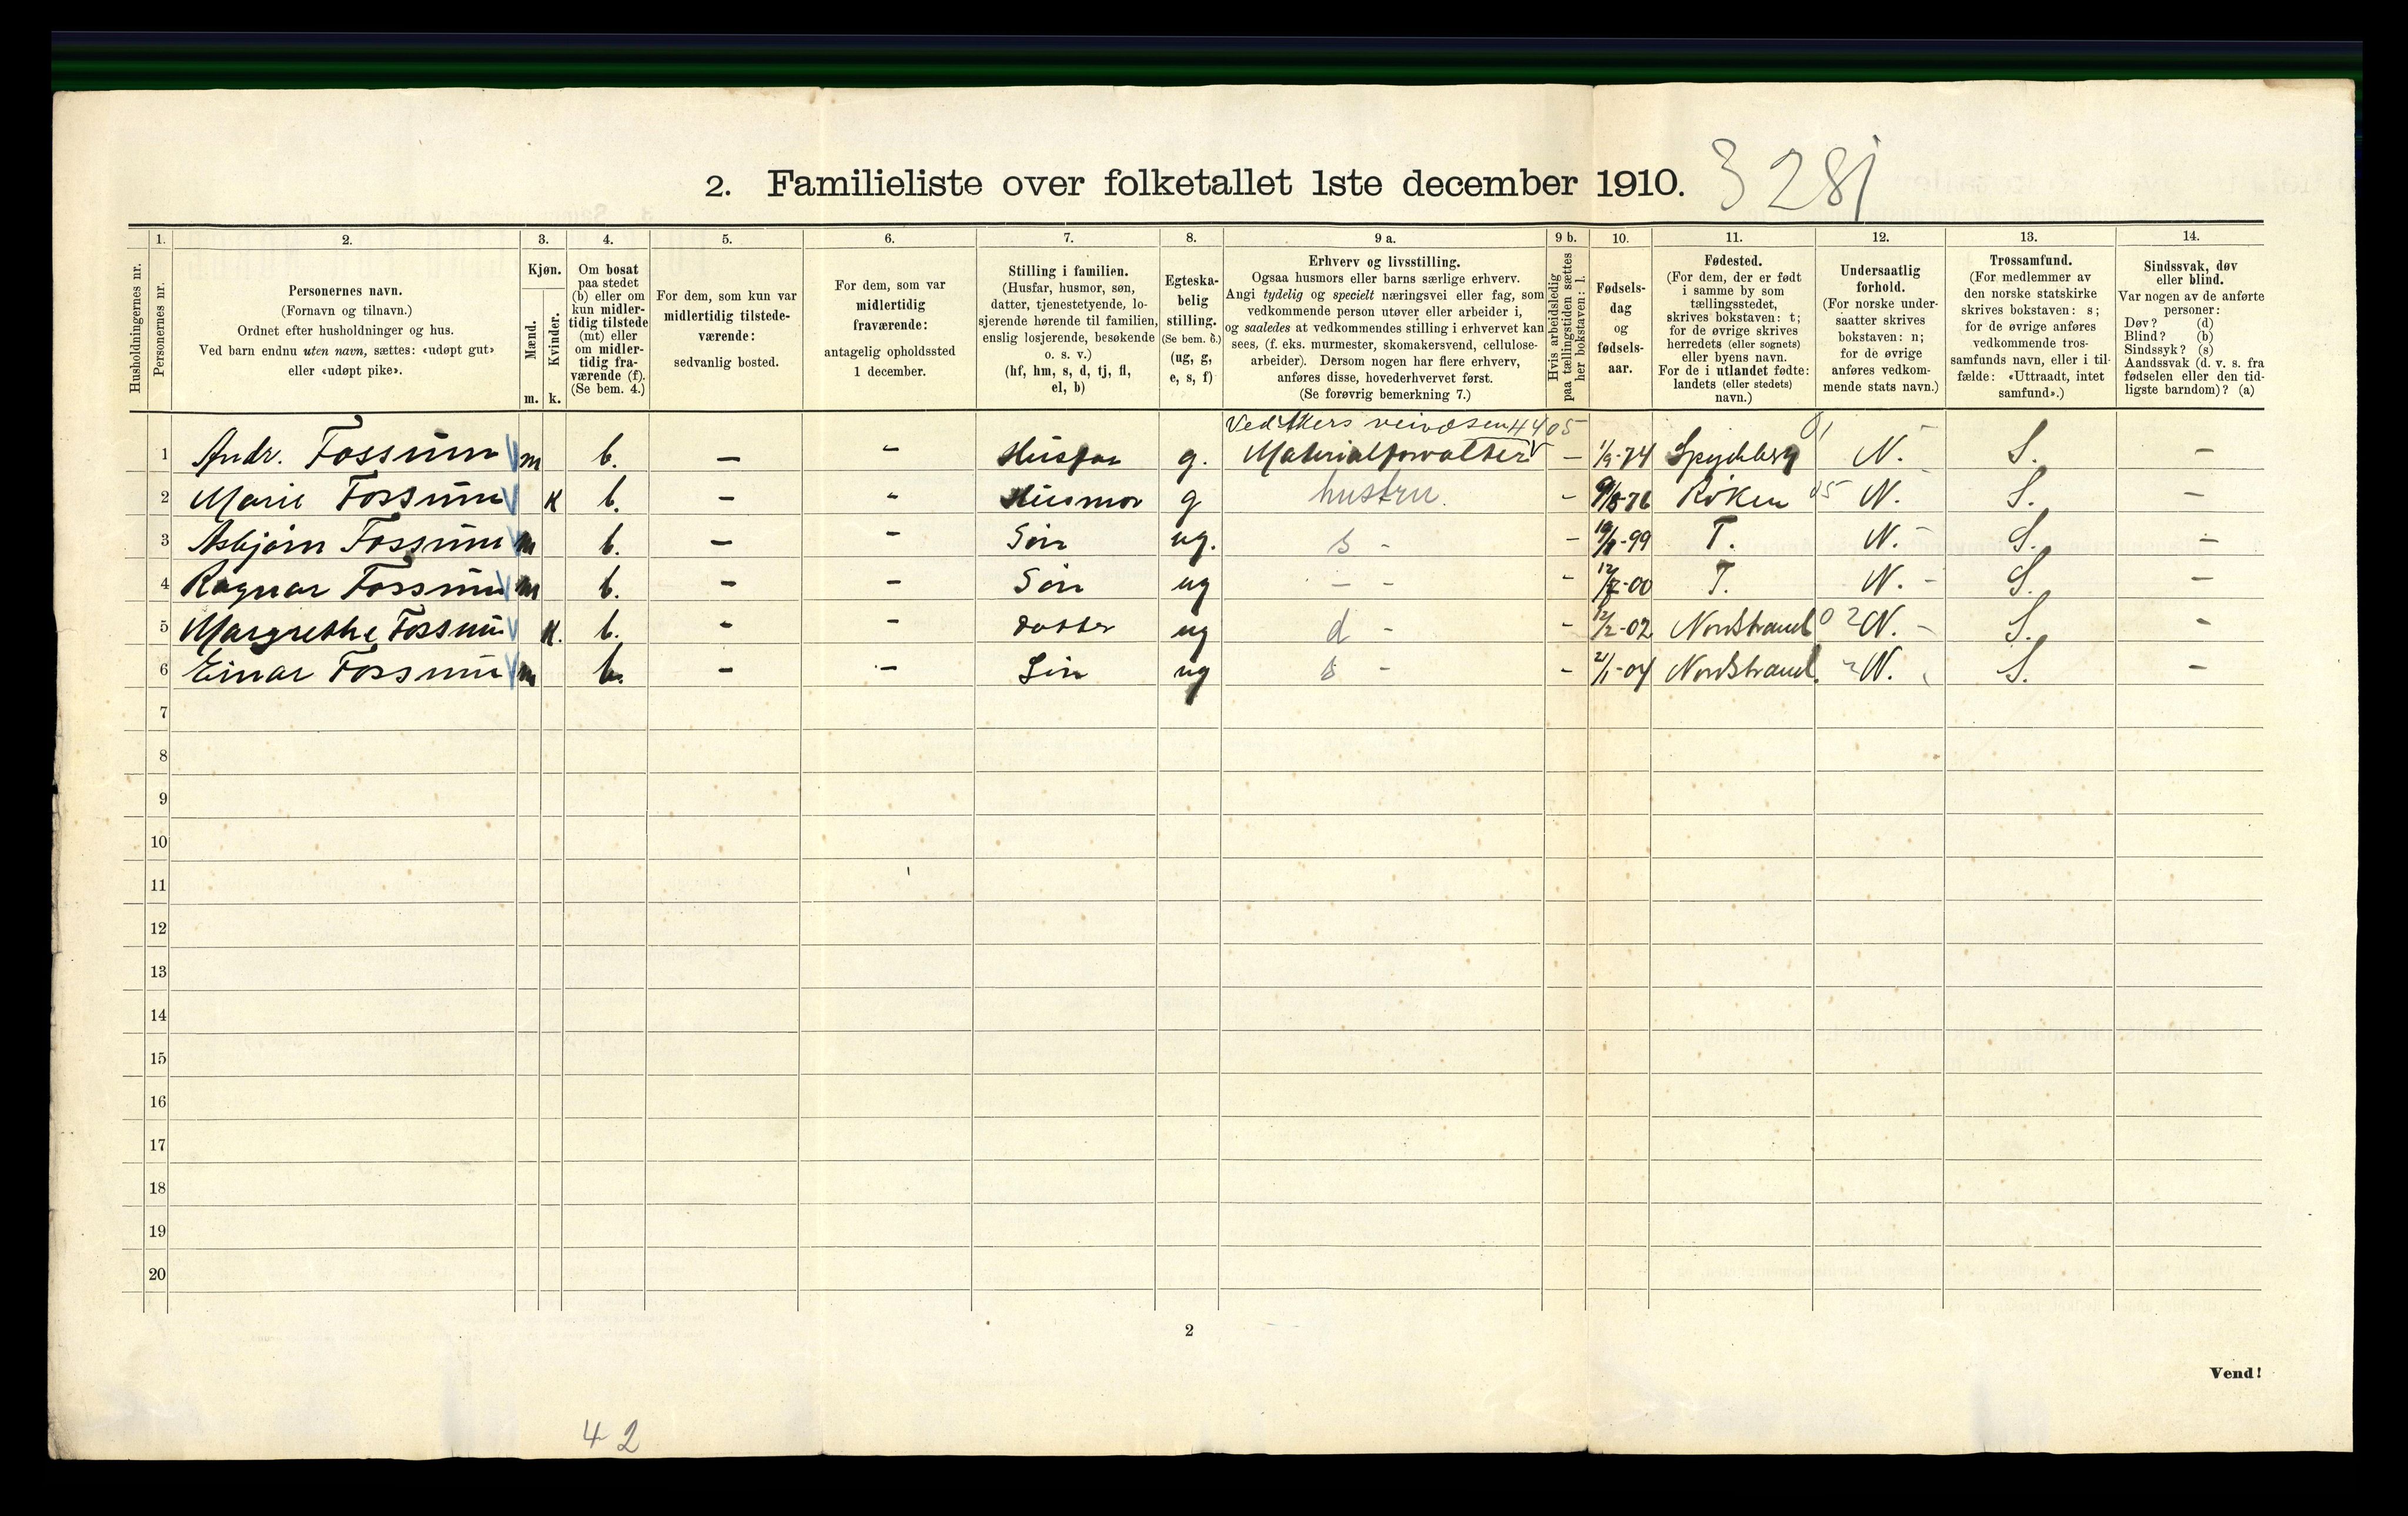 2. Familieliste over folketallet 1ste december 1910. 3281
Husholdningernes nr.
1. Personernes nr.
2. Personernes navn. (Fornavn og tilnavn.) Ordnet efter husholdninger og hus. Ved barn endnu uten navn, sættes: «udøpt gut» eller «udøpt pike».
3. Kjøn. Mænd. m. Kvinder. k.
4. Om bosat paa stedet (b) eller om kun midlertidig tilstede (mt) eller om midlertidig fraværende (f). (Se bem. 4.)
5. For dem, som kun var midlertidig tilstedeværende: sedvanlig bosted.
6. For dem, som var midlertidig fraværende: antagelig opholdssted 1 december.
7. Stilling i familien. (Husfar, husmor, søn, datter, tjenestetyende, losjerende hørende til familien, enslig losjerende, besøkende o. s. v.) (hf, hm, s, d, tj, fl, el, b)
8. Egteskabelig stilling. (Se bem. 6.) (ug, g, e, s, f)
9 a. Erhverv og livsstilling. Ogsaa husmors eller barns særlige erhverv. Angi tydelig og specielt næringsvei eller fag, som vedkommende person utøver eller arbeider i, og saaledes at vedkommendes stilling i erhvervet kan sees, (f. eks. murmester, skomakersvend, cellulosearbeider). Dersom nogen har flere erhverv, anføres disse, hovederhvervet først. (Se forøvrig bemerkning 7.)
9 b. Hvis arbeidsledig paa tællingstiden sættes her bokstaven: l.
10. Fødselsdag og fødselsaar.
11. Fødested. (For dem, der er født i samme by som tællingsstedet, skrives bokstaven: t; for de øvrige skrives herredets (eller sognets) eller byens navn. For de i utlandet fødte: landets (eller stedets) navn.)
12. Undersaatlig forhold. (For norske undersaatter skrives bokstaven: n; for de øvrige anføres vedkommende stats navn.)
13. Trossamfund. (For medlemmer av den norske statskirke skrives bokstaven: s; for de øvrige anføres vedkommende trossamfunds navn, eller i tilfælde: «Uttraadt, intet samfund».)
14. Sindssvak, døv eller blind. Var nogen av de anførte personer: Døv? (d) Blind? (b) Sindssyk? (s) Aandssvak (d. v. s. fra fødselen eller den tidligste barndom)? (a)
Ved Akers veivæsen 4405
1 Andr. Fossum m b. - - Husfar g. Materialforvalter - 1/9-74 Spydeberg 01 N. - S. -
2 Marie Fossum k b. - - Husmor g hustru. - Røken 05 N. S. -
3 Asbjørn Fossum m b. - - Søn ug. s - - T. N. - S. -
4 Ragnar Fossum m b. - - Søn ug - - - T. N. - S. -
5 Margrethe Fossum k. b. - - Datter ug d - - 12/2-02 Nordstrand 02 N. - S. -
6 Einar Fossum m b. - - Søn ug s - - 21/1-04 Nordstrand. N. S. -
7
8
9
10
11
12
13
14
15
16
17
18
19
20
2
Vend!
42